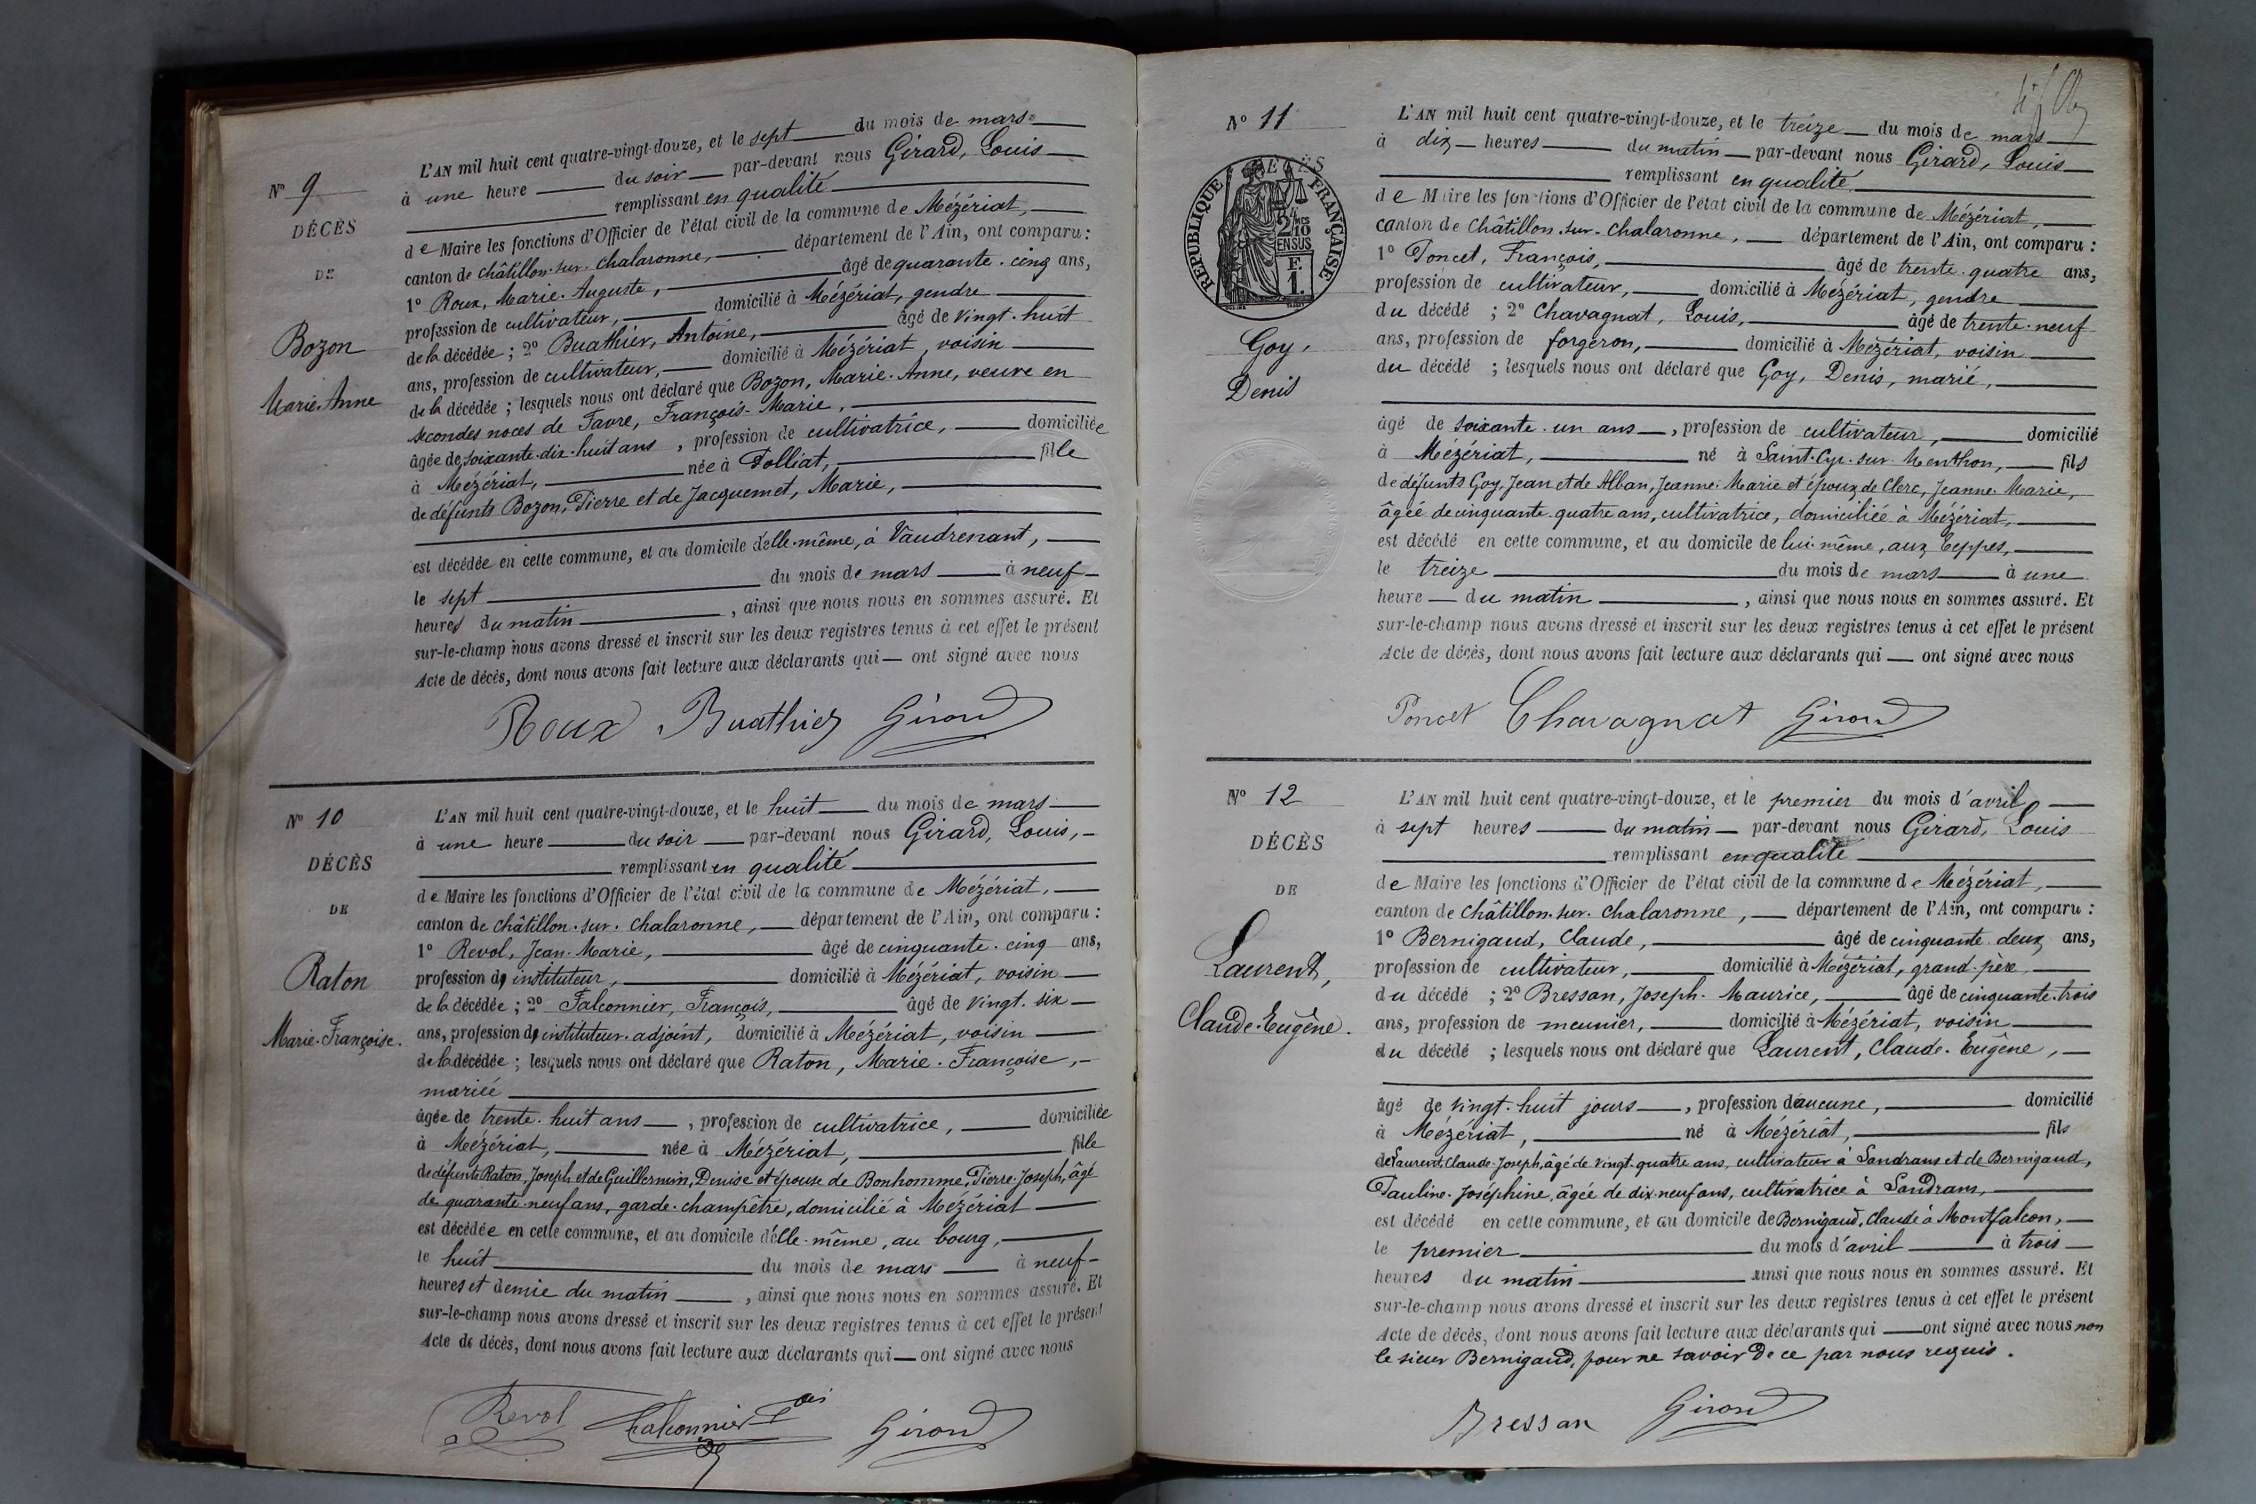 N° 9
DÉCÈS
DE
Bozon
Marie-Anne
L'AN mil huit cent quatre-vingt-douze, et le sept du mois de mars
à une heure du soir par-devant nous Girard, Louis
remplissant en qualité
de Maire les fonctions d'Officier de l'état civil de la commune de Mézériat,
canton de Châtillon-sur-Chalaronne, département de l'Ain, ont comparu :
1° Roux, Marie-Auguste, âgé de quarante-cinq ans,
profession de cultivateur, domicilié à Mézériat, gendre
de la décédée ; 2° Buathier, Antoine, âgé de vingt-huit
ans, profession de cultivateur, domicilié à Mézériat, voisin
de la décédée ; lesquels nous ont déclaré que Bozon, Marie-Anne, veuve en
secondes noces de Favre, François-Marie,
âgée de soixante-dix-huit ans, profession de cultivatrice, domiciliée
à Mézériat, née à Polliat, fille
de défunts Bozon, Pierre et de Jacquemet, Marie,
est décédée en cette commune, et au domicile d'elle-même, à Vaudrenant,
le sept du mois de mars à neuf
heures du matin, ainsi que nous nous en sommes assuré. Et
sur-le-champ nous avons dressé et inscrit sur les deux registres tenus à cet effet le présent
Acte de décès, dont nous avons fait lecture aux déclarants qui ont signé avec nous
Roux Buathier Girard
N° 10
DÉCÈS
DE
Raton
Marie-Françoise.
L'AN mil huit cent quatre-vingt-douze, et le huit du mois de mars
à une heure du soir par-devant nous Girard, Louis,
remplissant en qualité
de Maire les fonctions d'Officier de l'état civil de la commune de Mézériat,
canton de Châtillon-sur-Chalaronne, département de l'Ain, ont comparu :
1° Revol, Jean-Marie, âgé de cinquante-cinq ans,
profession d' instituteur, domicilié à Mézériat, voisin
de la décédée ; 2° Falconnier, François, âgé de vingt-six
ans, profession d' instituteur-adjoint, domicilié à Mézériat, voisin
de la décédée ; lesquels nous ont déclaré que Raton, Marie-Françoise,
mariée
âgée de trente-huit ans, profession de cultivatrice, domiciliée
à Mézériat, née à Mézériat, fille
de défunts Raton, Joseph et de Guillermin, Denise et épouse de Bonhomme, Pierre-Joseph, âgé
de quarante-neuf ans, garde-champêtre, domicilié à Mézériat
est décédée en cette commune, et au domicile d'elle-même, au bourg,
le huit du mois de mars à neuf
heures et demie du matin, ainsi que nous nous en sommes assuré. Et
sur-le-champ nous avons dressé et inscrit sur les deux registres tenus à cet effet le présent
Acte de décès, dont nous avons fait lecture aux déclarants qui ont signé avec nous
Revol Falconnier Fçois Girard
N° 11
RÉPUBLIQUE FRANÇAISE
2/10
EN SUS
F.
1.
Goy,
Denis
L'AN mil huit cent quatre-vingt-douze, et le treize du mois de mars
à dix heures du matin par-devant nous Girard, Louis
remplissant en qualité
de Maire les fonctions d'Officier de l'état civil de la commune de Mézériat,
canton de Châtillon-sur-Chalaronne, département de l'Ain, ont comparu :
1° Poncet, François, âgé de trente-quatre ans,
profession de cultivateur, domicilié à Mézériat, gendre
du décédé ; 2° Chavagnat, Louis, âgé de trente-neuf
ans, profession de forgeron, domicilié à Mézériat, voisin
du décédé ; lesquels nous ont déclaré que Goy, Denis, marié,
âgé de soixante-un ans, profession de cultivateur, domicilié
à Mézériat, né à Saint-Cyr-sur-Menthon, fils
de défunts Goy, Jean et de Alban, Jeanne-Marie et époux de Clerc, Jeanne-Marie,
âgée de cinquante-quatre ans, cultivatrice, domiciliée à Mézériat,
est décédé en cette commune, et au domicile de lui-même, aux Teppes,
le treize du mois de mars à une
heure du matin, ainsi que nous nous en sommes assuré. Et
sur-le-champ nous avons dressé et inscrit sur les deux registres tenus à cet effet le présent
Acte de décès, dont nous avons fait lecture aux déclarants qui ont signé avec nous
Poncet Chavagnat Girard
N° 12
DÉCÈS
DE
Laurent,
Claude-Eugène.
L'AN mil huit cent quatre-vingt-douze, et le premier du mois d'avril
à sept heures du matin par-devant nous Girard, Louis
remplissant en qualité
de Maire les fonctions d'Officier de l'état civil de la commune de Mézériat,
canton de Châtillon-sur-Chalaronne, département de l'Ain, ont comparu :
1° Bernigaud, Claude, âgé de cinquante-deux ans,
profession de cultivateur, domicilié à Mézériat, grand-père
du décédé ; 2° Bressan, Joseph-Maurice, âgé de cinquante-trois
ans, profession de meunier, domicilié à Mézériat, voisin
du décédé ; lesquels nous ont déclaré que Laurent, Claude-Eugène,
âgé de vingt-huit jours, profession d'aucune, domicilié
à Mézériat, né à Mézériat, fils
de Laurent, Claude-Joseph, âgé de vingt-quatre ans, cultivateur à Sandrans et de Bernigaud,
Pauline-Joséphine, âgée de dix-neuf ans, cultivatrice à Sandrans,
est décédé en cette commune, et au domicile de Bernigaud, Claude à Montfalcon,
le premier du mois d'avril à trois
heures du matin ainsi que nous nous en sommes assuré. Et
sur-le-champ nous avons dressé et inscrit sur les deux registres tenus à cet effet le présent
Acte de décès, dont nous avons fait lecture aux déclarants qui ont signé avec nous non
le sieur Bernigaud, pour ne savoir de ce par nous requis.
Bressan Girard